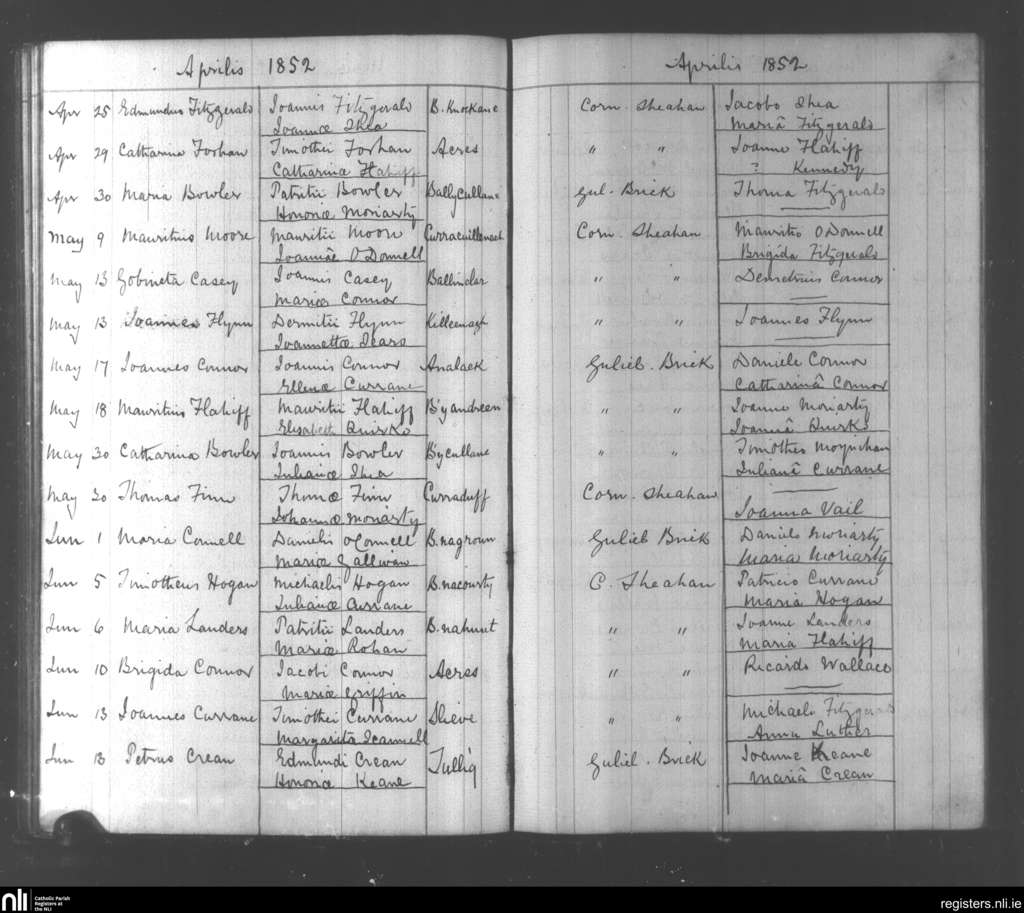 Aprilis 1852
Aprilis 1852
Apr 25 Edmundus Fitzgerald Joannis Fitzgerald B. Knockane Corn. Sheahan Jacobo Shea
Joannæ Shea Mariâ Fitzgerald
Apr 29 Catharina Forhan Timothii Forhan Acres " " Joanne Flahiff
Catharina Flahiff ? Kennedy
Apr 30 Maria Bowler Patritii Bowler Ballycullane Gul. Brick Thoma Fitzgerald
Honoriæ Moriarty
May 9 Mauritius Moore Mauritii Moore Curracuillenach Corn. Sheahan Mauritio O'Donnell
Joannæ O'Donnell Brigida Fitzgerald
May 13 Gobineta Casey Joannis Casey Ballinclar " " Demetrius Connor
Mariæ Connor
May 13 Joannes Flynn Dermitii Flynn Killeenagh " " Joannes Flynn
Joannettæ Sears
May 17 Joannes Connor Joannis Connor Analack Guliel. Brick Daniele Connor
Ellenæ Currane Catharinâ Connor
May 18 Mauritius Flahiff Mauritii Flahiff B'yandreen " " Joanne Moriarty
Elizabeth Quirke Joannâ Quirke
May 30 Catharina Bowler Joannis Bowler B'ycullane " " Timotheo Moynihan
Julianæ Shea Julianâ Currane
May 30 Thomas Finn Thomæ Finn Curraduff Corn. Sheahan
Johannæ Moriarty Joanna Vail
Jun 1 Maria Connell Danielis O'Connell B. nagroun Guliel Brick Daniele Moriarty
Mariæ Gallivan Maria Moriarty
Jun 5 Timotheus Hogan Michaelis Hogan B. nacourty C. Sheahan Patricio Currane
Julianæ Currane Maria Hogan
Jun 6 Maria Landers Patritii Landers B. nahunt " " Joanne Landers
Mariæ Rohan Maria Flahiff
Jun 10 Brigida Connor Jacobi Connor Acres " " Ricardo Wallace
Mariæ Griffin
Jun 13 Joannes Currane Timothei Currane Slieve " " Michaele Fitzgerald
Margarita Scannell Anna Luther
Jun 13 Petrus Crean Edmundi Crean Tullig Guliel. Brick Joanne Keane
Honoriæ Keane Mariâ Crean
nli Catholic Parish
Registers at
the NLI
registers.nli.ie